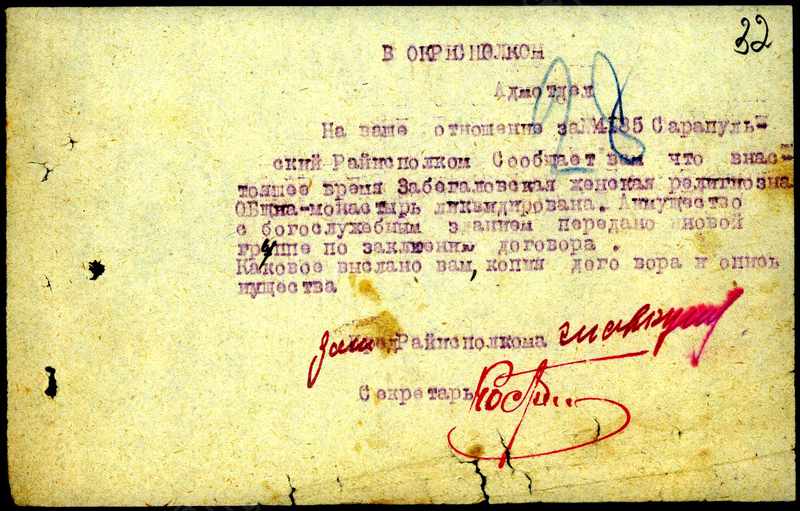 32
В ОКРИСПОЛКОМ
28
Адмотдел
На ваше отношение за№4135 Сарапуль-
ский Райисполком Сообщает вам что внас-
тоящее время Забегаловская женская религиозна
Община-монастырь ликвидирована. Аимущество
с богослужебным зданием передано новой
группе по заклюении договора .
Каковое выслано вам, копия дого вора и опись
иущества
Зам Пред Райисполкома
Секретарь